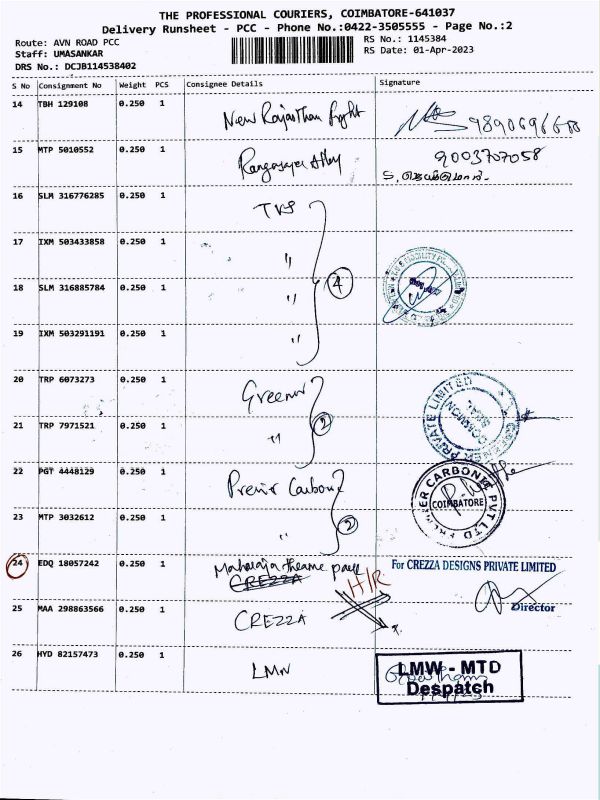 THE PROFESSIONAL COURIERS, COIMBATORE-641037
Delivery Runsheet - PCC - Phone No.:0422-3505555 - Page No.:2
Route: AVN ROAD PCC
RS No.: 1145384
Staff: UMASANKAR
RS Date: 01-Apr-2023
DRS No.: DCJB114538402
S No Consignment No Weight PCS Consignee Details Signature
14 TBH 129108 0.250 1 New Rajasthan
15 MTP 5010552 0.250 1 9003707058
16 SLM 316776285 0.250 1 TVS
17 IXM 503433858 0.250 1 "
18 SLM 316885784 0.250 1 " 4
19 IXM 503291191 0.250 1 "
20 TRP 6073273 0.250 1
21 TRP 7971521 0.250 1 " 2 PRIVATE LIMITED
22 PGT 4448129 0.250 1 Carbon CARBONE PVT LTD
COIMBATORE
23 MTP 3032612 0.250 1 " 2
24 EDQ 18057242 0.250 1 Maharaja theame park For CREZZA DESIGNS PRIVATE LIMITED
CREZZA H/R
Director
25 MAA 298863566 0.250 1 CREZZA
26 HYD 82157473 0.250 1 LMW LMW - MTD
Despatch